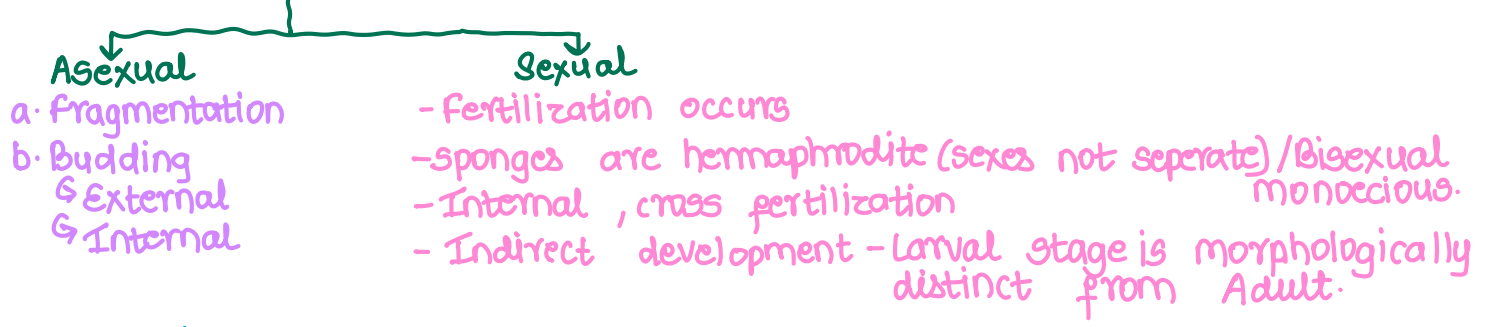 Asexual
a. Fragmentation
b. Budding
↳ External
↳ Internal
Sexual
- Fertilization occurs
- sponges are hermaphrodite (sexes not seperate) / Bisexual
monoecious.
- Internal , cross fertilization
- Indirect development - Larval stage is morphologically
distinct from Adult.